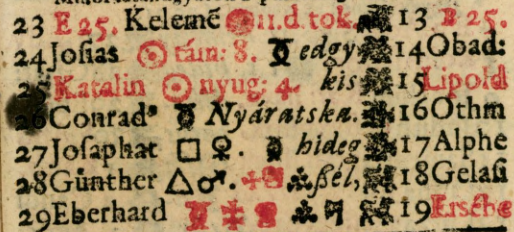 23 E 25. Kelemē 11.d.tok. 13 E 25.
24 Josias ☉ tám: 8. edgy 14 Obad:
25 Katalin ☉ nyug: 4. kis 15 Lipold
26 Conrad9 Nyáratska. 16 Othm
27 Josaphat □ ♀. hideg 17 Alphe
28 Günther △ ♂. ßél, 18 Gelasi
29 Eberhard 19 Ersébe